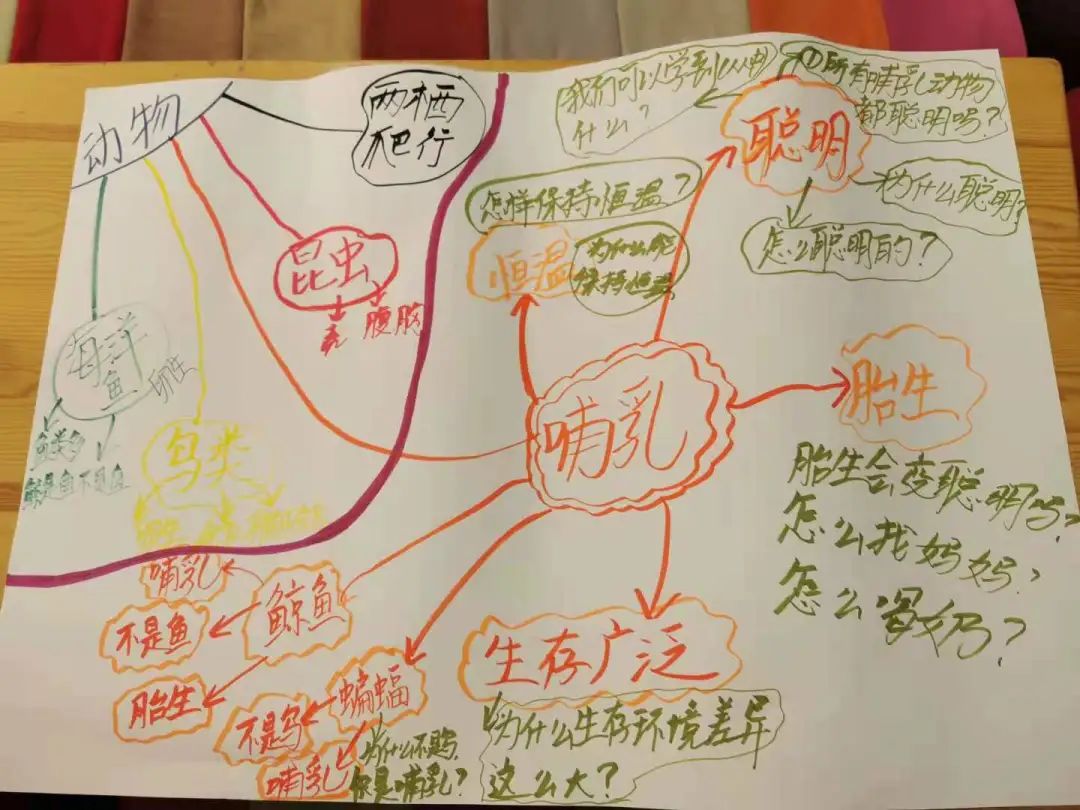 动物
两栖
爬行
昆虫
壳
腹
海洋
鱼
卵生
鱼类多
鸟类
哺乳
聪明
我们可以学到从中
什么?
①所有哺乳动物
都聪明吗?
为什么聪明?
怎么聪明的?
怎样保持恒温?
恒温
为什么能
保持恒温
胎生
胎生会变聪明吗?
怎么找妈妈?
怎么
奶?
生存广泛
为什么生存环境差异
这么大?
鲸鱼
哺乳
不是鱼
胎生
蝙蝠
不是鸟
哺乳
为什么不是鸟
但是哺乳?